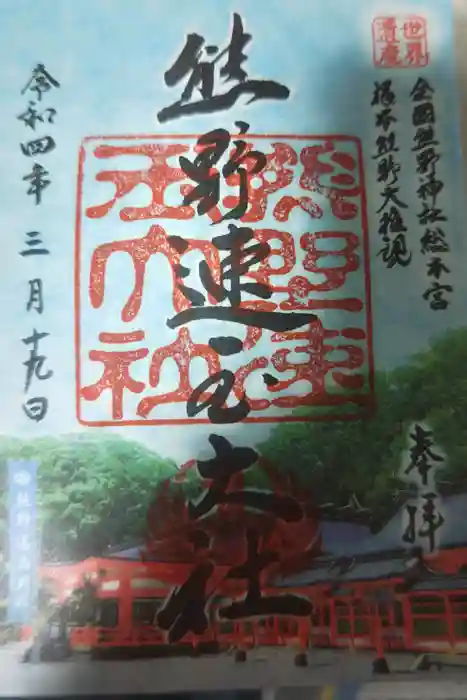 世界
遺産
全国熊野神社総本宮
根本熊野大権現
奉拝
熊野速玉大社
熊野速
玉大社
令和四年三月十九日